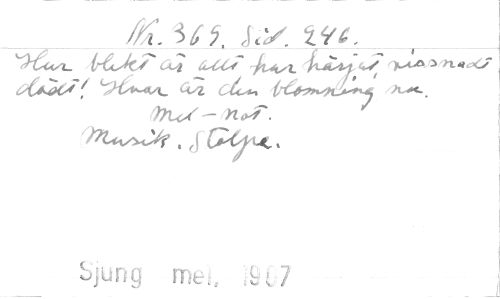 Nr. 369. Sid. 246.
Hur blekt är allt, har härjat, vissnadt
dödt! Hvar är den blomning nu.
Mel-not.
Musik. Stolpe.
Sjung mel, 1907